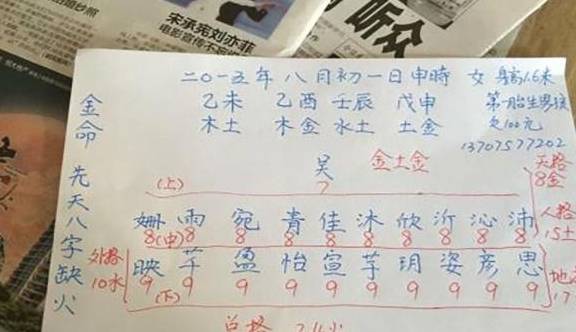 朱承宪刘亦菲
听众
二〇一五年八月初一日申時 女 身高1.6米
金命
乙未 乙酉 壬辰 戊申 第一胎生男孩
木土 木金 水土 土金 欠100元
13707577202
吴 金土金
天格
8金
先天八字缺火
(上) 7
姍 雨 宛 青 佳 沐 欣 沂 沁 沛
8(中) 8 8 8 8 8 8 8 8 8
人格
15土
外格
10水
映 芊 盈 怡 宣 芋 玥 姿 彥 思
9 (下) 9 9 9 9 9 9 9 9 9
17
总格